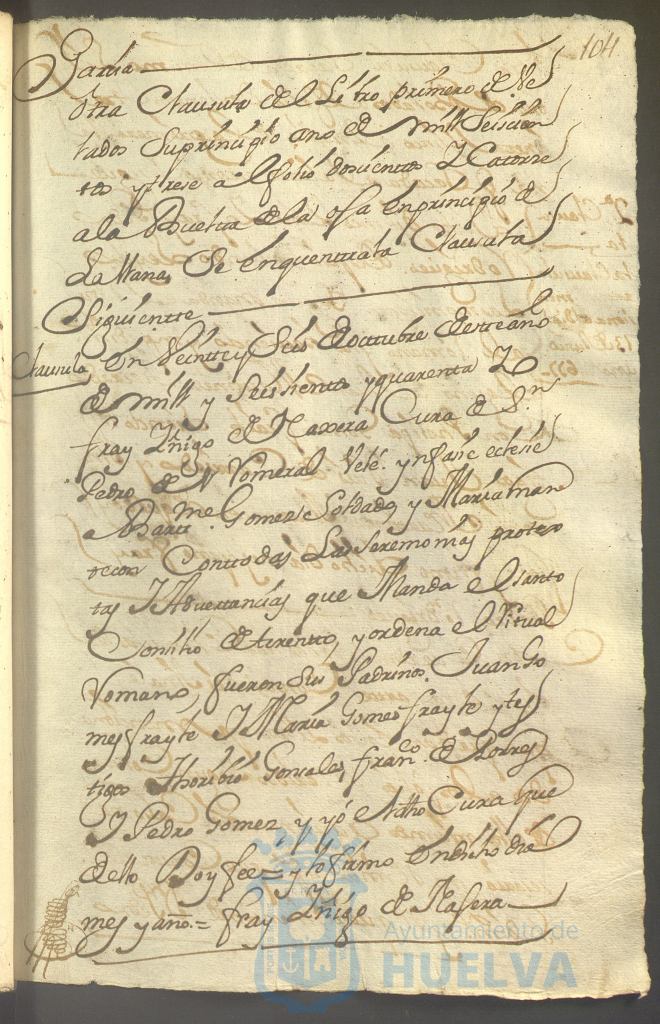 104
Garcia
Otra Clausula del Libro primero de Ve
lados Suprincipio ano de Mill Seiscien
tos y trese al folio dosientos y Catorse
ala Buelta de la osa Enprincipio de
La llana, Se Enquentra la Clausula
Siguientte
Clausula En Veintte y Seis de octtubre de este año
de Mill y Seissientos y quarenta Yo
fray Yñigo de Naxera Cura de Sn
Pedro de Velé. ynfasie eclesie
a Bartme. Gomez Soldado, y Maria man
tecon Conttodas Las seremonias protes
tas Y Advertancias que Manda el santo
Consilio de trentto, y ordena el Ritual
Romano, fueron Sus Padrinos. Juan Go
mes frayle Y Maria Gomes frayle y tes
tigos Thoribio Gonsales, Franco. de Torres
Y Pedro Gomez, y yo dtho Cura que
dello Doy fee = y lo firmo En dicho dia
mes y año. = fray Yñigo de Nasera
Ayuntamiento de
HUELVA